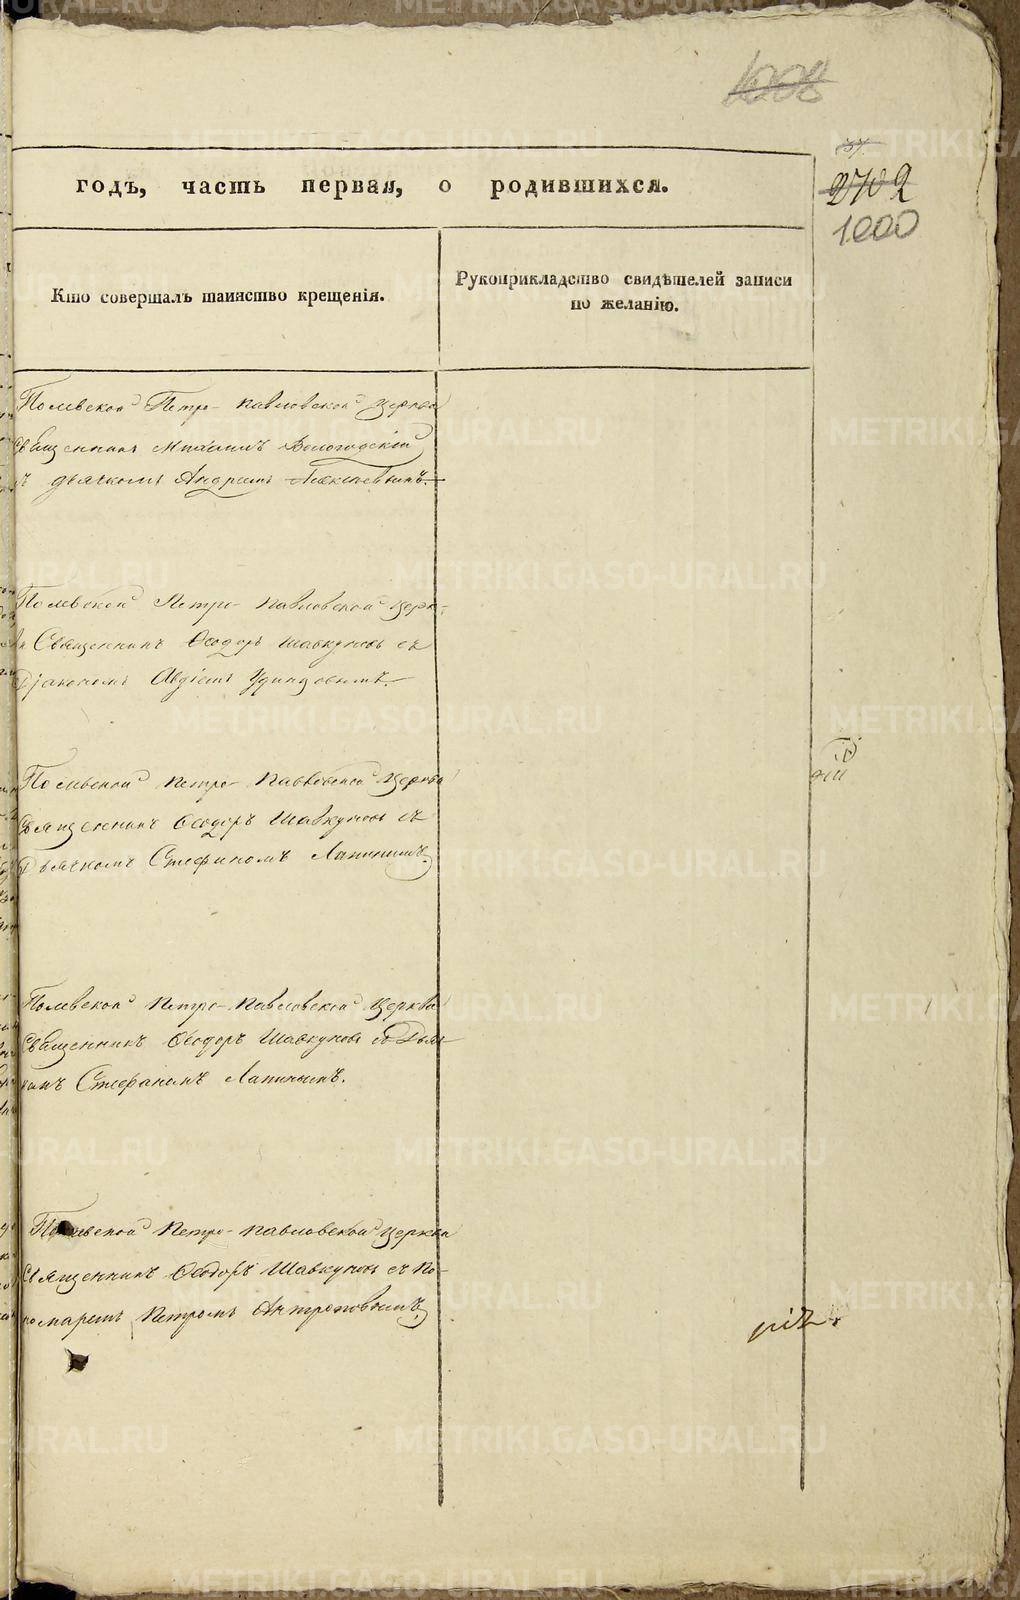 1008
37.
2702
1000
годъ, часть первая, о родившихся.
Кто совершалъ таинство крещенія.
Рукоприкладство свидѣтелей записи
по желанію.
Полевской Петро-Павловской Церкви
Священникъ Михаилъ Вологодскій
съ дьячкомъ Андреемъ
Полевской Петро-Павловской Церк-
ви Священникъ Ѳеодоръ Шавкуновъ съ
Діакономъ Авдіемъ Удинцовымъ.
Полевской Петро-Павловской Церкви
Священникъ Ѳеодоръ Шавкуновъ съ
Дьячкомъ Стефаномъ Лапинымъ.
Полевской Петро-Павловской Церкви
Священникъ Ѳеодоръ Шавкуновъ съ Дьяч-
комъ Стефаномъ Лапинымъ.
Полевской Петро-Павловской Церкви
Священникъ Ѳеодоръ Шавкуновъ съ По-
номаремъ Петромъ Антроповымъ.
METRIKI.GASO-URAL.RU